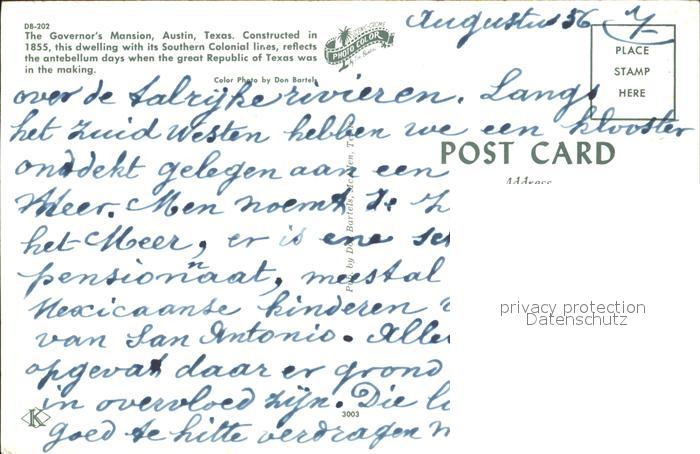 DB-202
The Governor's Mansion, Austin, Texas. Constructed in
1855, this dwelling with its Southern Colonial lines, reflects
the antebellum days when the great Republic of Texas was
in the making.
Color Photo by Don Bartels
PHOTO COLOR
Augustus 56
PLACE
STAMP
HERE
over de talrijke rivieren. Langs
het zuid Westen hebben we een klooster
POST CARD
Address
ontdekt gelegen aan een
Meer. Men noemt
het Meer, er is ene
pensionaat, meestal
Mexicaanse kinderen
van San Antonio. Alle
opgevat daar er grond
in overvloed zijn. Die
goed te hitte verdragen
Pub. by Don Bartels,
K
3003
privacy protection
Datenschutz